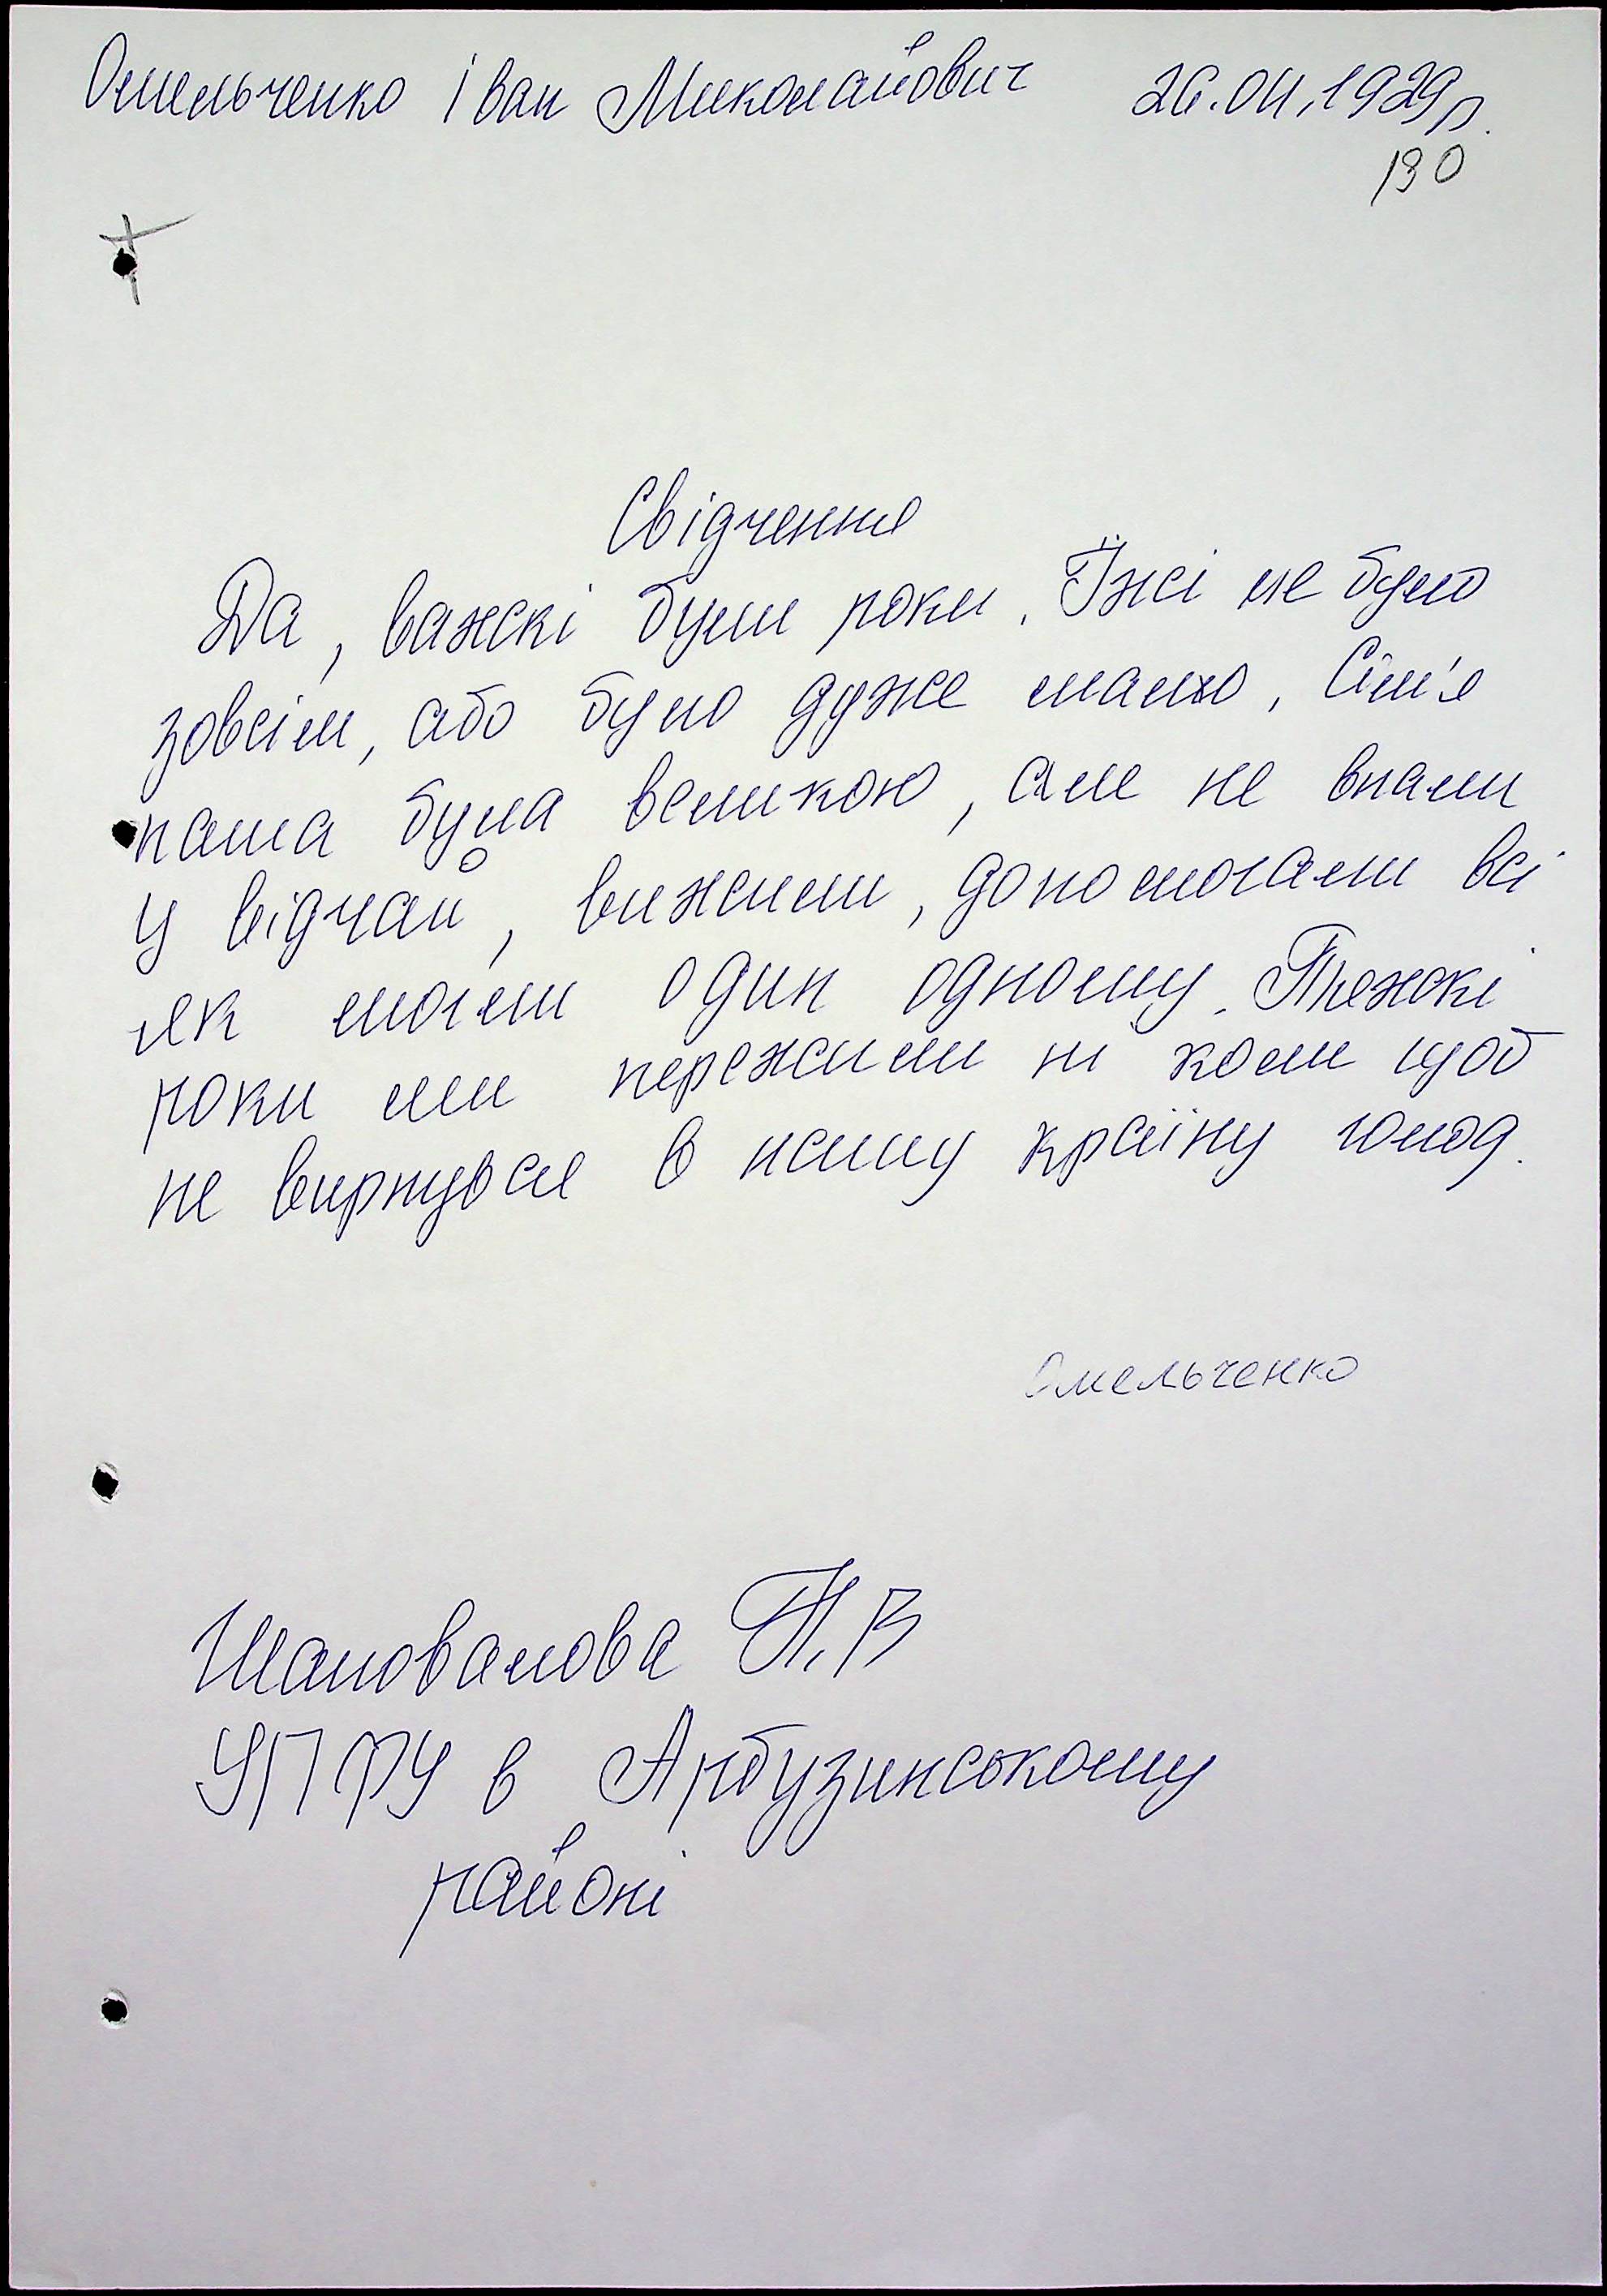 Омельченко Іван Миколайович 26.04.1929р.
130
Свідчення
Да, важскі були роки. Їжі не було
зовсім, або було дуже мало, Сім'я
наша була великою, але не впали
у відчай, вижили, допомогали всі
як могли один одному. Тяжскі
роки ми пережили ні коли щоб
не вирнувся в нашу країну голод.
Омельченко
Шаповалова Т.В
УПФУ в Арбузинському
районі